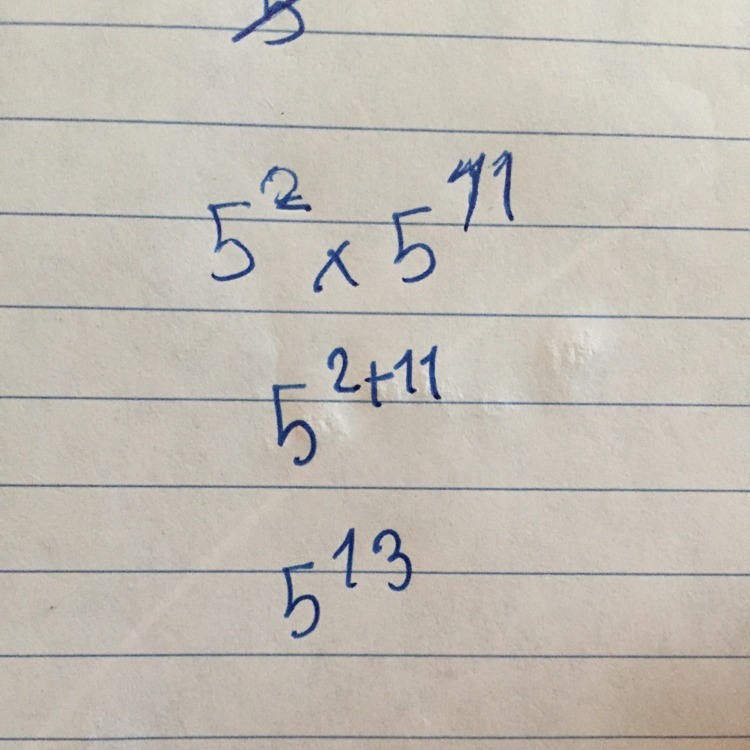 5² × 5¹¹
5²⁺¹¹
5¹³